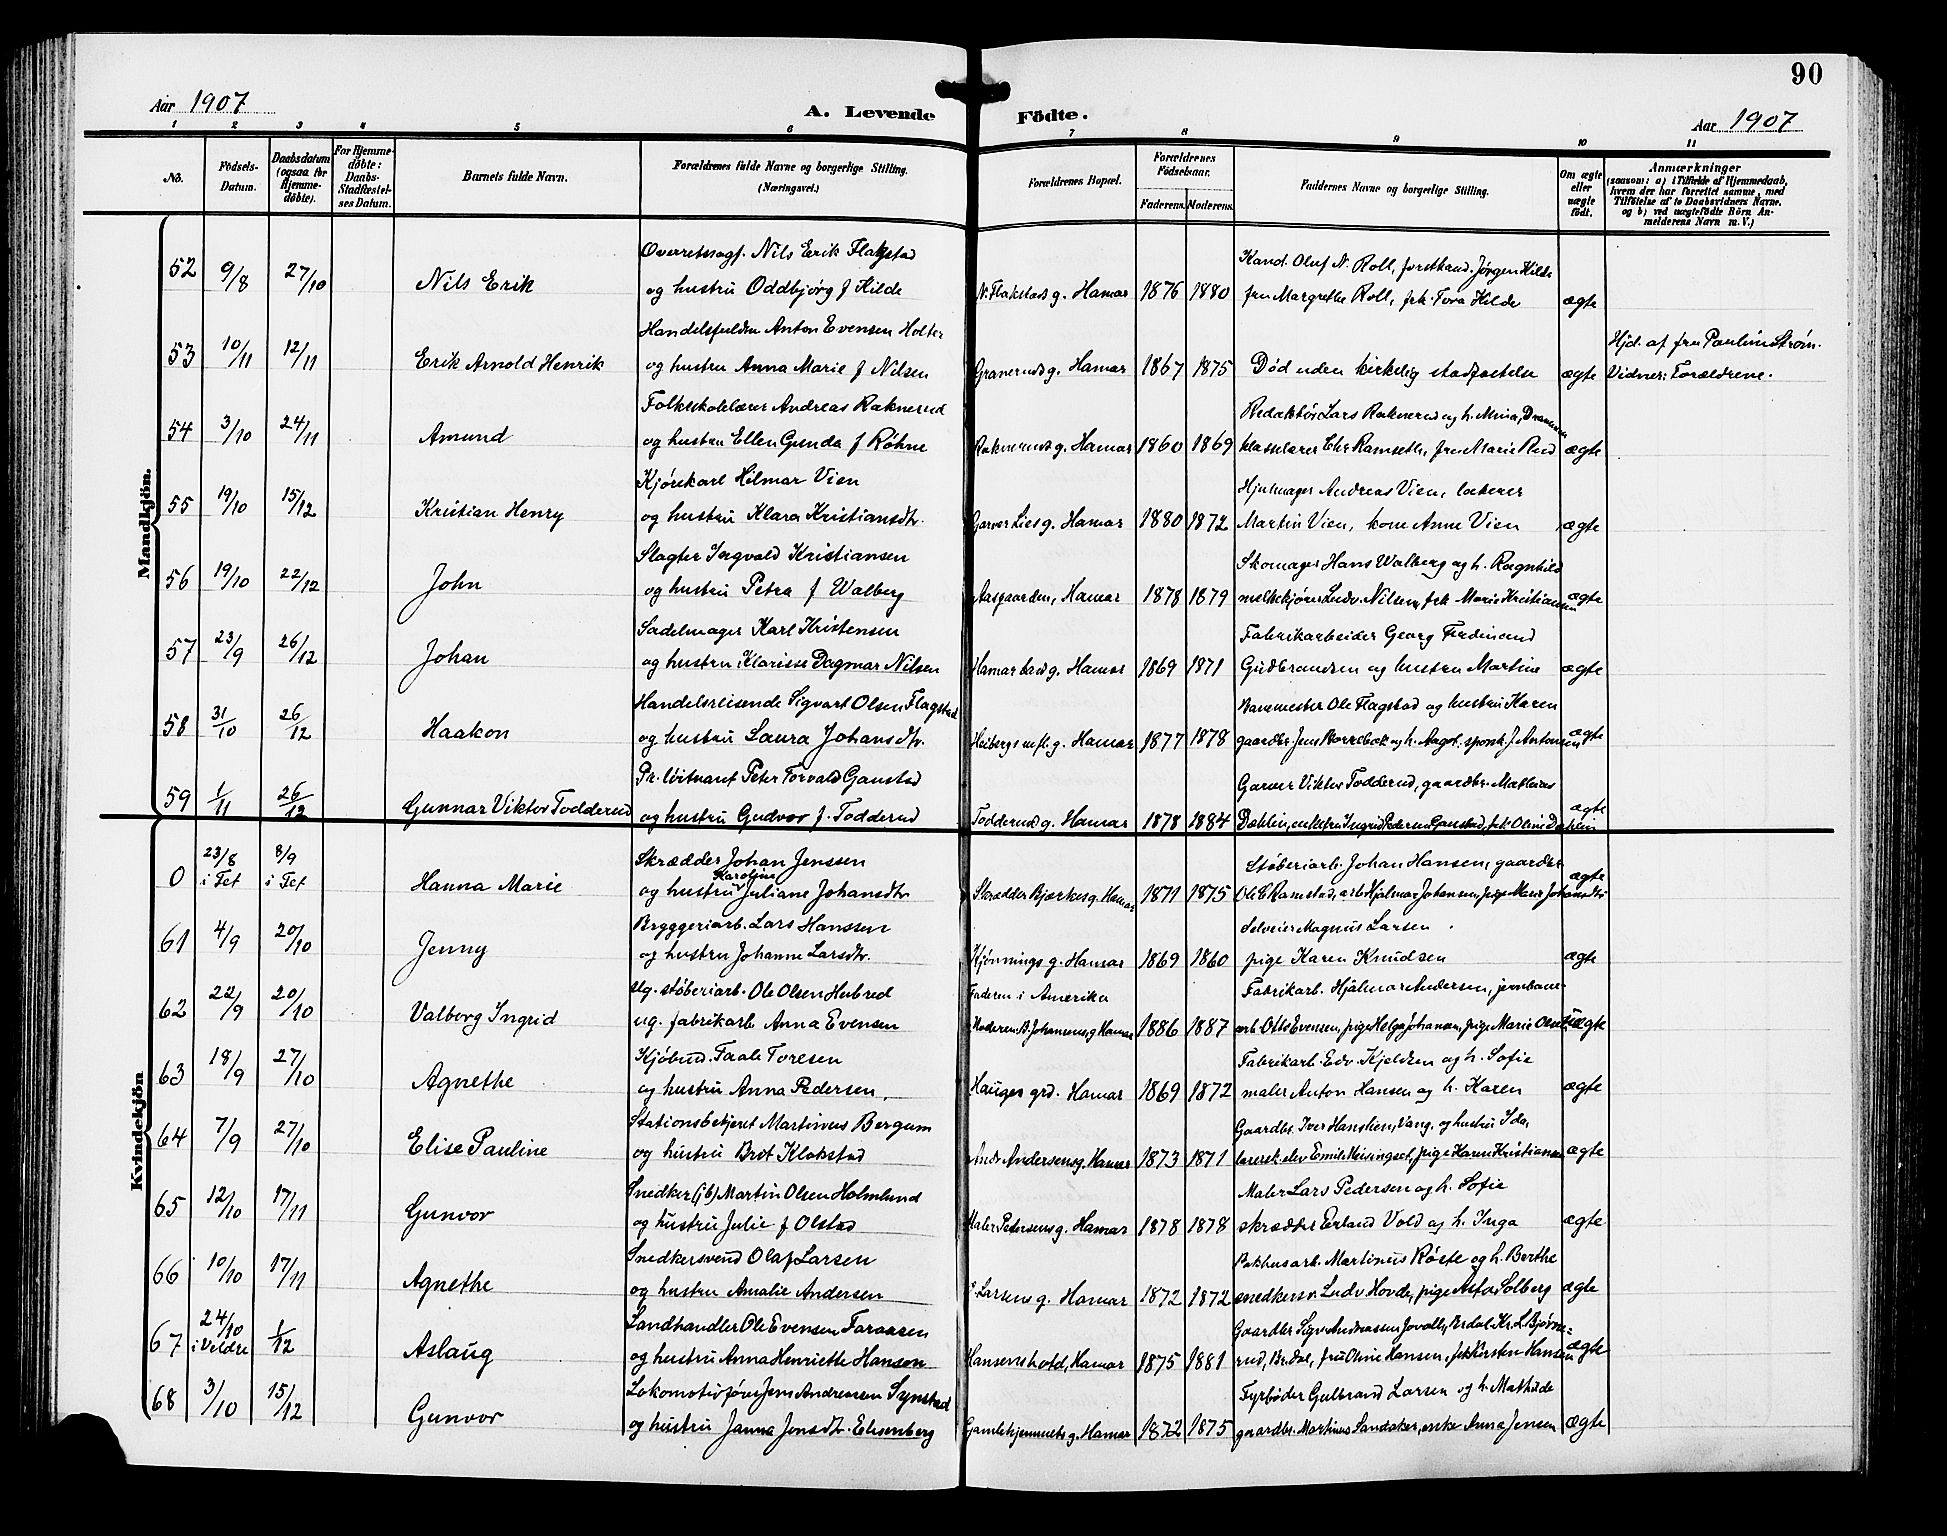 90
Aar 1907
A. Levende Födte.
Aar 1907
1 2 3 4 5 6 7 8 9 10 11
No.
Födsels-Datum.
Daabsdatum (ogsaa for Hjemme-döbte).
For Hjemme-döbte: Daabs-Stadfæstel-ses Datum.
Barnets fulde Navn.
Forældrenes fulde Navne og borgerlige Stilling.
(Næringsvei.)
Forældrenes Bopæl.
Forældrenes Födselsaar.
Faderens. Moderens.
Faddernes Navne og borgerlige Stilling.
Om ægte eller uægte födt.
Anmærkninger
(saasom: a) i Tilfælde af Hjemmedaab, hvem der har forrettet samme, med Tilföielse af to Daabsvidners Navne, og b) ved uægtefödte Börn An-melderens Navn m. V.)
Mandkjön.
52 9/8 27/10 Nils Erik
Overretssagf. Nils Erik Flakstad
og hustru Oddbjörg f Hilde
N. Flakstads g. Hamar 1876 1880
Kand. Oluf N. Roll, forstkand. Jørgen Hilde
fru Margrethe Roll, frk. Tora Hilde
ægte
53 10/11 12/11 Erik Arnold Henrik
Handelsfuldm Anton Evensen Holter
og hustru Anna Marie f Nilsen
Graneruds g. Hamar 1867 1875
Død uden kirkelig stadfæstelse
ægte
Hjd. af fru Pauline Strøm.
Vidner: Forældrene.
54 3/10 24/11 Amund
Folkeskolelærer Andreas Raknerud
og hustru Ellen Gunda f Røhne
Rakneruds g. Hamar 1860 1869
Redaktör Lars Raknerud og h. Mina, Drammen
klasselærer Chr Ramseth, fru Marie Rud
ægte
55 19/10 15/12 Kristian Henry
Kjørekarl Hilmar Vien
og hustru Klara Kristiansdtr.
Garver Lies g. Hamar 1880 1872
Hjulmager Andreas Vien, lakerer
Martin Vien, kone Anne Vien
ægte
56 19/10 22/12 John
Slagter Ingvald Kristiansen
og hustru Petra f Walberg
Aasgaarden, Hamar 1878 1879
Skomager Hans Walberg og h. Ragnhild
melkekjører Ludv. Nilsen, frk Marie Kristiansen
ægte
57 23/9 26/12 Johan
Sadelmager Karl Kristensen
og hustru Klarisse Dagmar Nilsen
Hamar bad g. Hamar 1869 1871
Fabrikarbeider Georg Ferdinand
Gudbrandsen og hustru Martine
ægte
58 31/10 26/12 Haakon
Handelsreisende Sigvart Olsen Flagstad
og hustru Laura Johansdtr.
Heibergs g. Hamar 1877 1878
Banemester Ole Flagstad og hustru Karen
gaardbr Jens og h. Aagot. J. Antonsen
ægte
59 1/11 26/12 Gunnar Viktor Todderud
Pr. löitnant Peter Torvald Ganstad
og hustru Gudvor f. Todderud
Todderuds g. Hamar 1878 1884
Garver Viktor Todderud, gaardbr. Mathias
Dæhlin, enkefru Ingrid Pedersen Ganstad, frk Oline Dæhlin
ægte
Kvindekjön
0 23/8 i Fet 8/9 i Fet Hanna Marie
Skrædder Johan Jenssen
og hustru Karoline Juliane Johansdtr.
Skrædder Bjerkes g. Hamar 1871 1875
Støberiarb. Johan Hansen, gaardbr
Ole E Ramstad, arb Hjalmar Johansen, pige Marie Johansdtr
ægte
61 4/9 20/10 Jenny
Bryggeriarb. Lars Hanssen
og hustru Johanne Larsdtr.
Kjønnings g. Hamar 1869 1860
Selveier Magnus Larsen
pige Karen Knudsen
ægte
62 22/9 20/10 Valborg Ingrid
Ug. støberiarb. Ole Olsen Hubred
ug. fabrikarb Anna Evensen
Faderen i Amerika
Moderen B. Johansens g Hamar 1886 1887
Fabrikarb. Hjalmar Andersen, jernbane-
arb Otto Evensen, pige Helga Johansen, pige Marie Olsen
uægte
63 18/9 27/10 Agnethe
Kjøbmd. Faale Toresen
og hustru Anna Pedersen
Hauges grd. Hamar 1869 1872
Fabrikarb. Edv. Kjeldsen og h. Sofie
maler Anton Hansen og h. Karen
ægte
64 7/9 27/10 Elise Pauline
Stationsbetjent Martinius Bergum
og hustru Brit Klokstad
Andr Andersens g. Hamar 1873 1871
Gaardbr. Iver Hansken, Vang, og hustru Ida
lærersk. elev Emil Meisingset, pige Karen Kristiansen
ægte
65 12/10 17/11 Gunvor
Snedker (jb) Martin Olsen Holmlund
og hustru Julie f Olstad
Maler Pedersens g. Hamar 1878 1878
Maler Lars Pedersen og h. Sofie
skrædder Erland Vold og h. Inga
ægte
66 10/10 17/11 Agnethe
Snedkersvend Olaf Larsen
og hustru Amalie Andersen
Larsens g. Hamar 1872 1872
Pakhusarb. Martinus Røste og h. Berthe
snedkersv. Ludv Hovde, pige Asta Solberg
ægte
67 24/10 i Veldre 1/12 Aslaug
Landhandler Ole Evensen Faraasen
og hustru Anna Henriette Hansen
Hansens hotel, Hamar 1875 1881
Gaardbr Sigv Andreassen Jevall, Brdal, Kr. L. Bjørne=
rud, Br.dal, fru Oline Hansen, frk Kirsten Hansen
ægte
68 3/10 15/12 Gunvor
Lokomotivfører Jens Andreasen Synstad
og hustru Janna Jonsdtr. Elisenberg
Gamlehjemmets g. Hamar 1872 1875
Fyrbøder Gulbrand Larsen og h. Mathilde
gaardbr. Martinus Sandaker, enke Anna Jensen
ægte